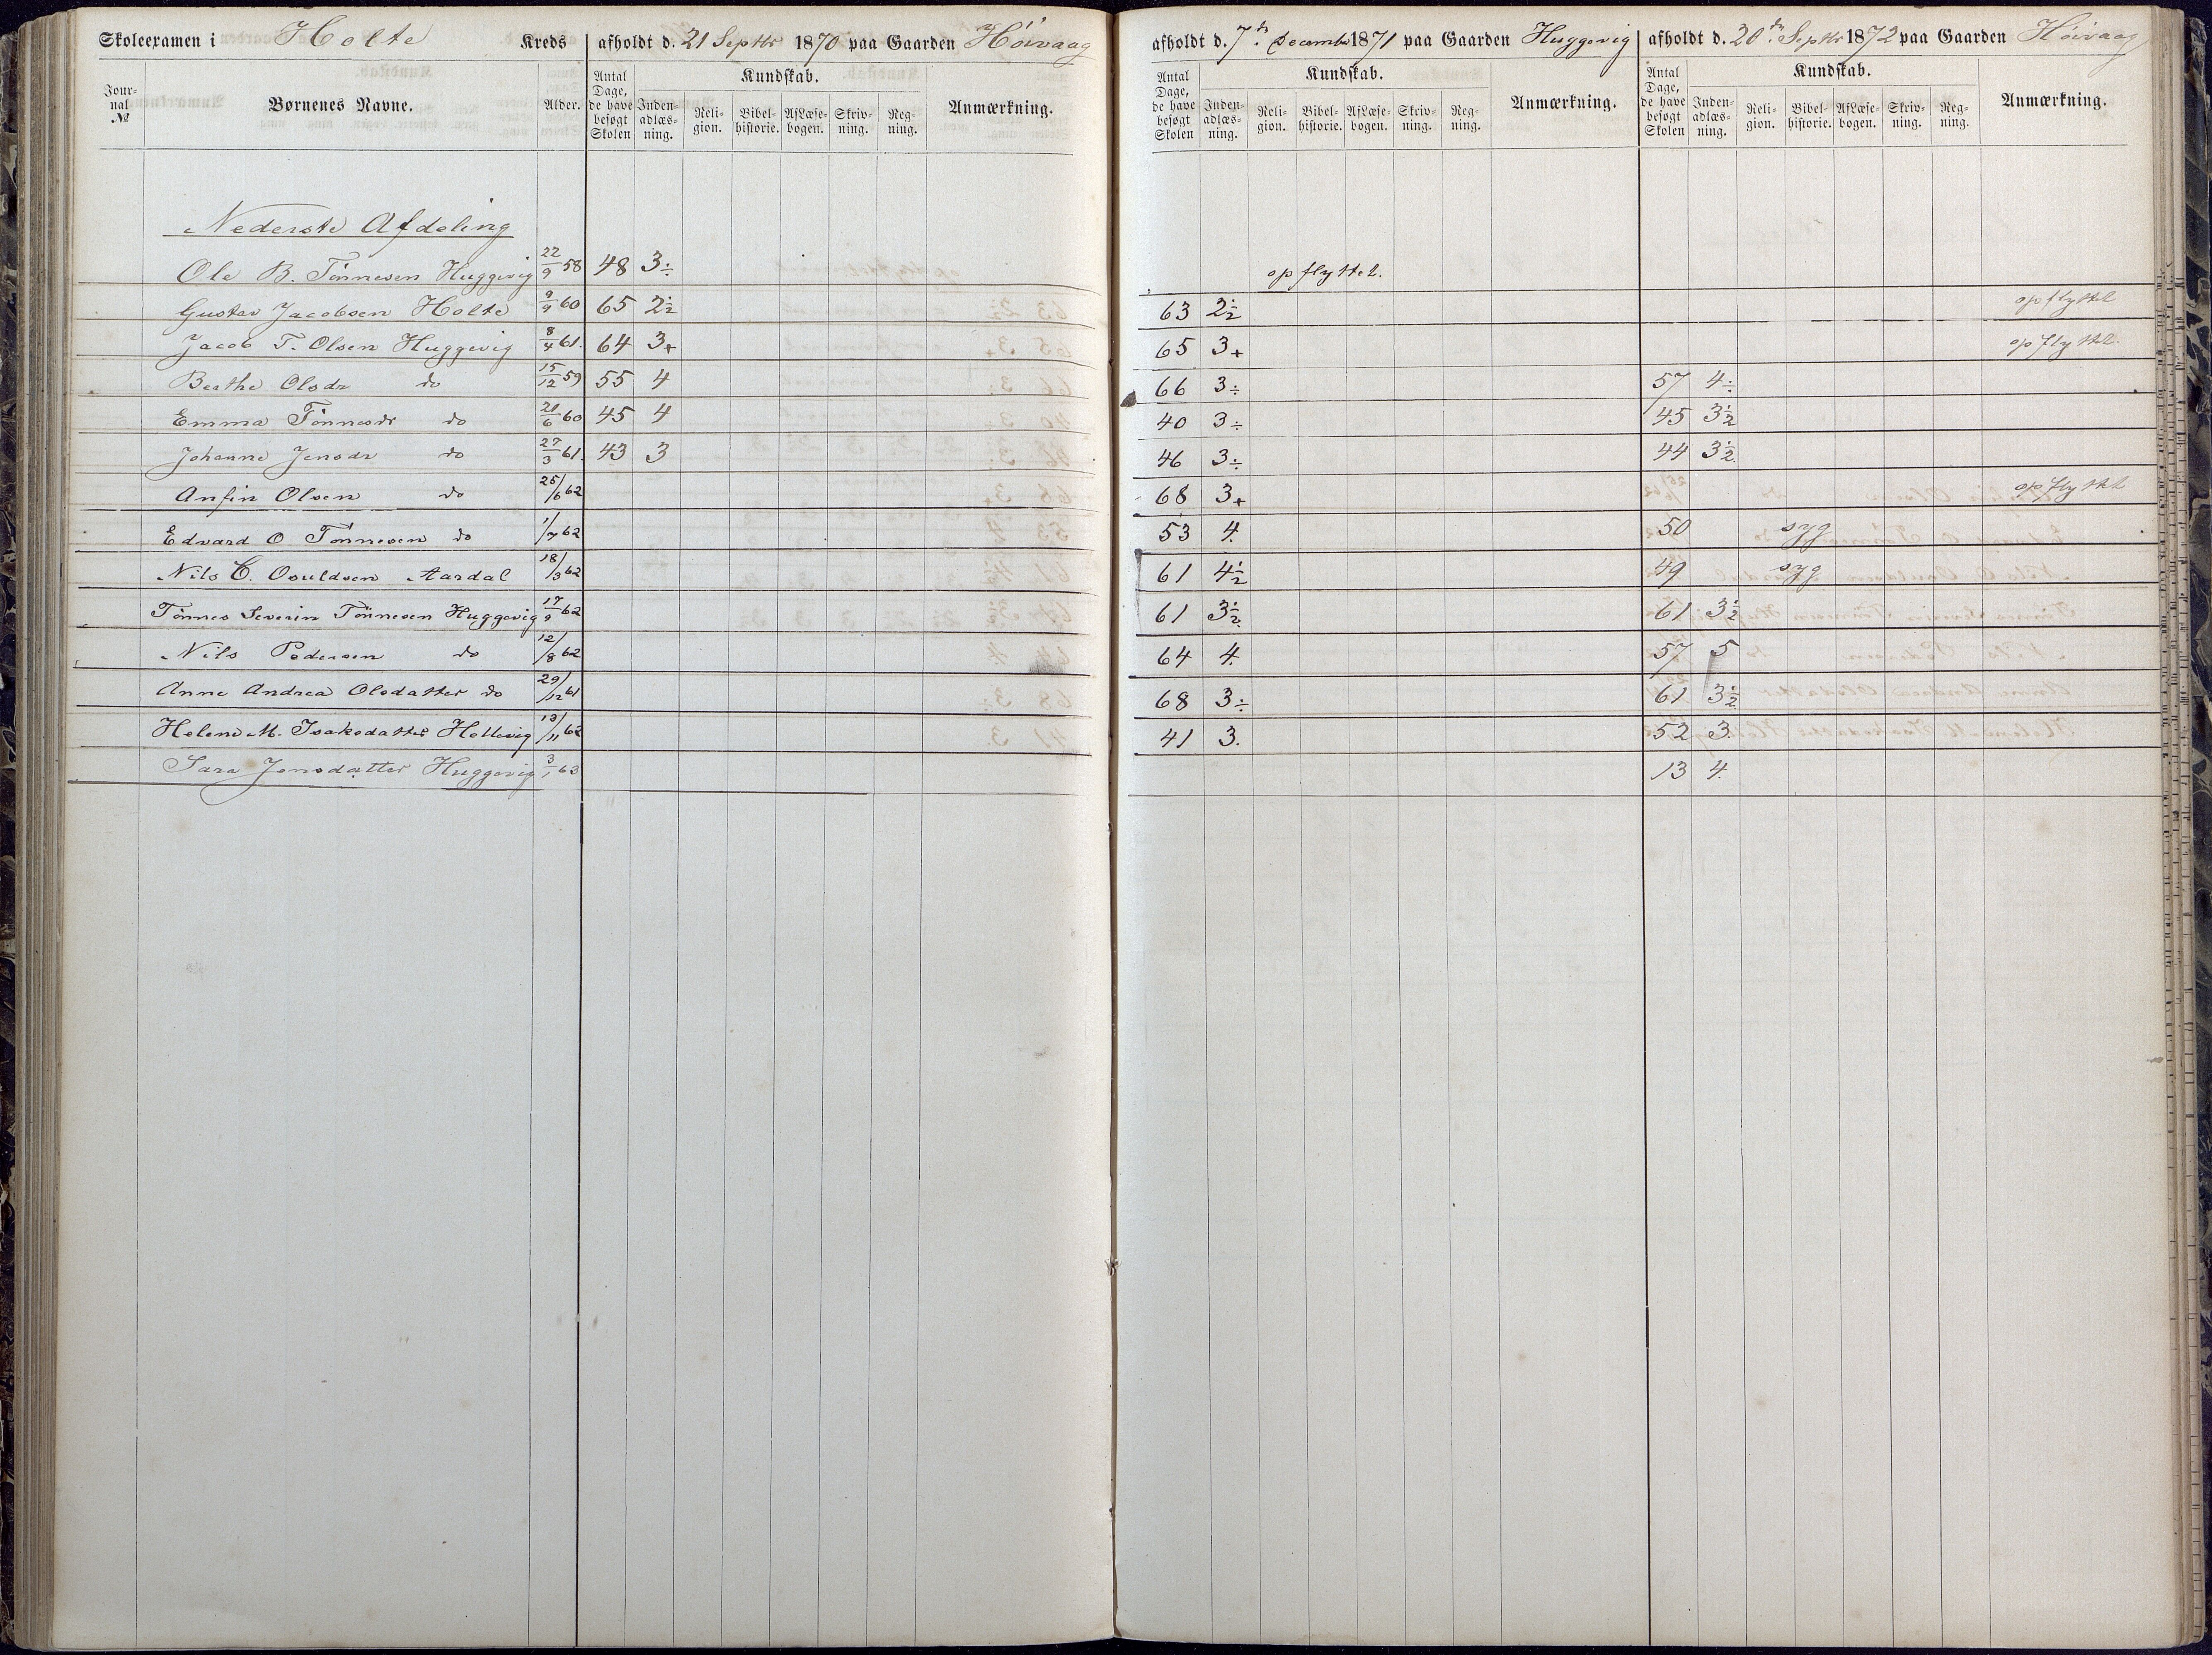 Skoleexamen i Holte Kreds afholdt d. 21 Septbr 1870 paa Gaarden Höivaag
Jour-nal № Børnenes Navne. Alder. Antal Dage, de have besøgt Skolen Kundskab. Inden-adlæs-ning. Reli-gion. Bibel-historie. AfLæse-bogen. Skriv-ning. Reg-ning. Anmærkning.
Nederste Afdeling
Ole B. Tönnesen Huggevig 22/9 58 48 3÷
Gustav Jacobsen Holte 9/9 60 65 2½
Jacob T. Olsen Huggevig 8/4 61. 64 3+
Berthe Olsdr do 15/12 59 55 4
Emma Tönnesdr do 21/6 60 45 4
Johanne Jensdr do 27/3 61. 43 3
Anfin Olsen do 25/6 62
Edvard O Tönnesen do 1/7 62
Nils C. Osuldsen Aardal 18/3 62
Tönnes Severin Tönnesen Huggevig 17/9 62
Nils Pedersen do 12/8 62
Anne Andrea Olsdatter do 29/12 61
Helene M. Isaksdatter Holtevig 13/11 62
Sara Jensdatter Huggevig 3/1 63
afholdt d. 7de Decembr 1871 paa Gaarden Huggevig
Antal Dage, de have besøgt Skolen Kundskab. Inden-adlæs-ning. Reli-gion. Bibel-historie. AfLæse-bogen. Skriv-ning. Reg-ning. Anmærkning.
opflyttet.
63 2½
65 3+
66 3÷
40 3÷
46 3÷
68 3+
53 4.
61 4½
61 3½
64 4.
68 3÷
41 3.
afholdt d. 20de Septbr 1872 paa Gaarden Höivaag
Antal Dage, de have besøgt Skolen Kundskab. Inden-adlæs-ning. Reli-gion. Bibel-historie. AfLæse-bogen. Skriv-ning. Reg-ning. Anmærkning.
opflyttet
opflyttet.
57 4÷
45 3½
44 3½
opflyttet
50 syg
49 syg
61 3½
57 5
61 3½
52 3.
13 4.